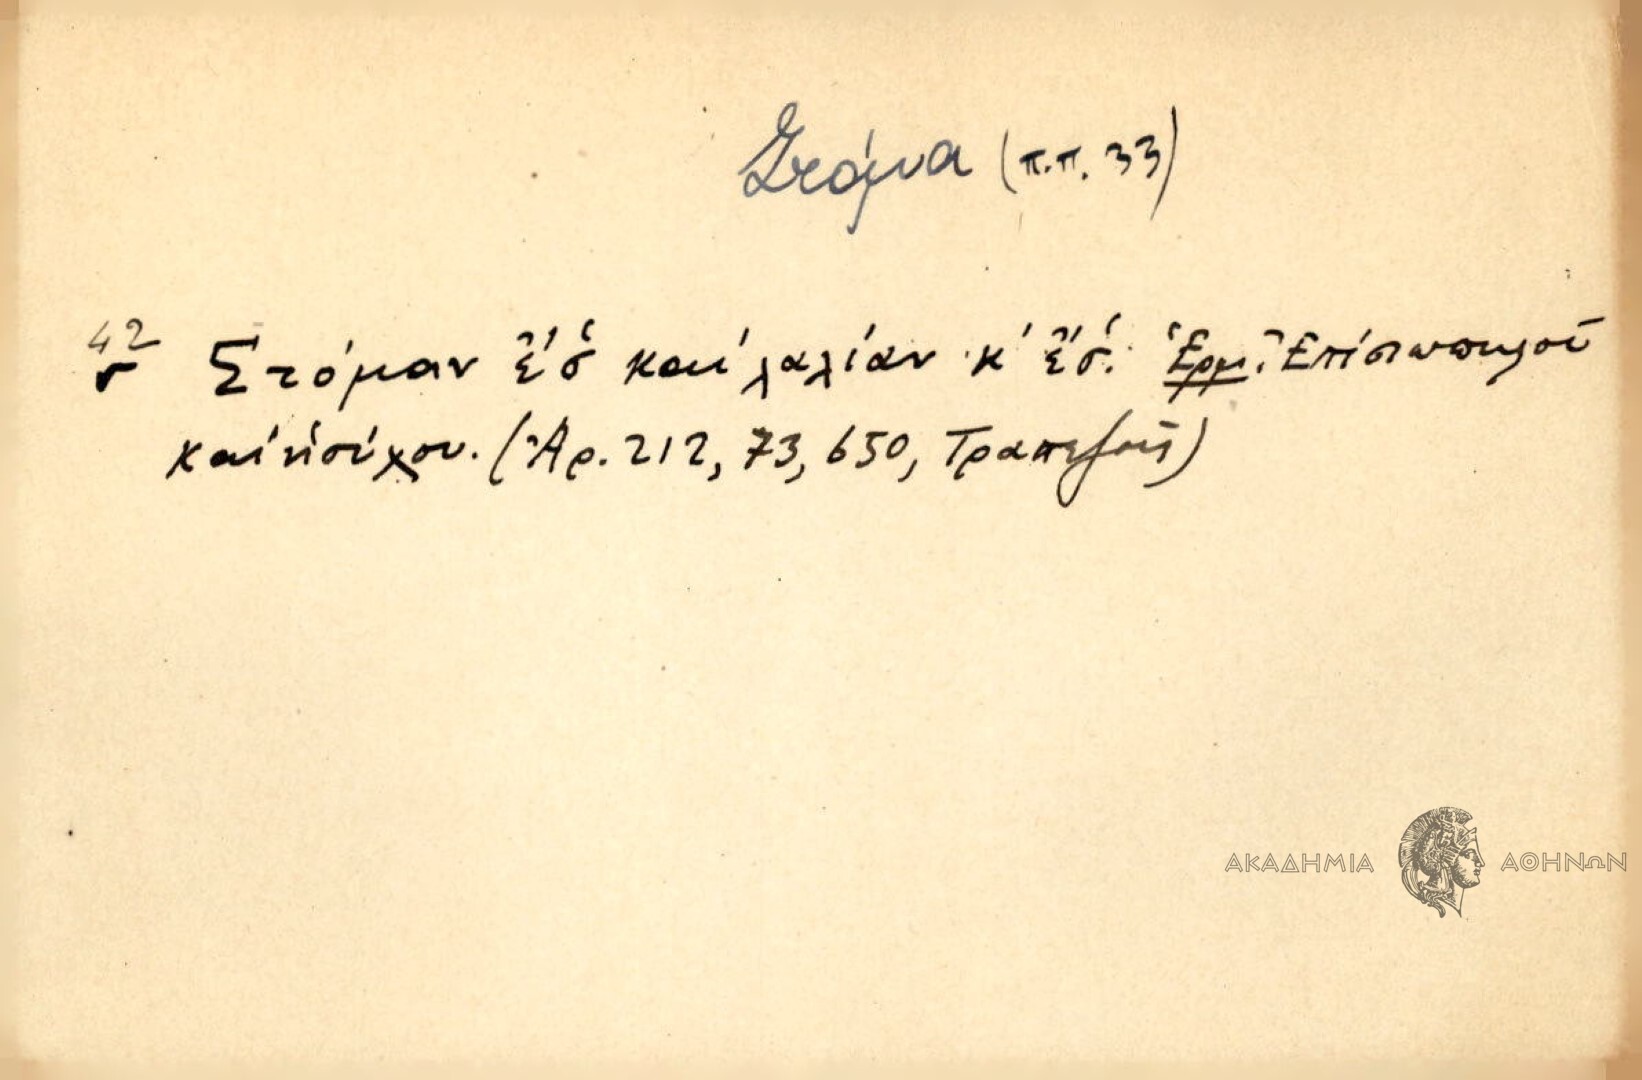 Στόμα (π.π. 33)
42
Στόμαν ἔ͜σ̌ καὶ λαλίαν κ' ἔ͜σ̌. Ἑρμ. Ἐπί σιωπηλοῦ
καὶ ἡσύχου. (Ἀρ. 212, 73, 650, Τραπεζοῦς)
ΑΚΑΔΗΜΙΑ ΑΘΗΝΩΝ